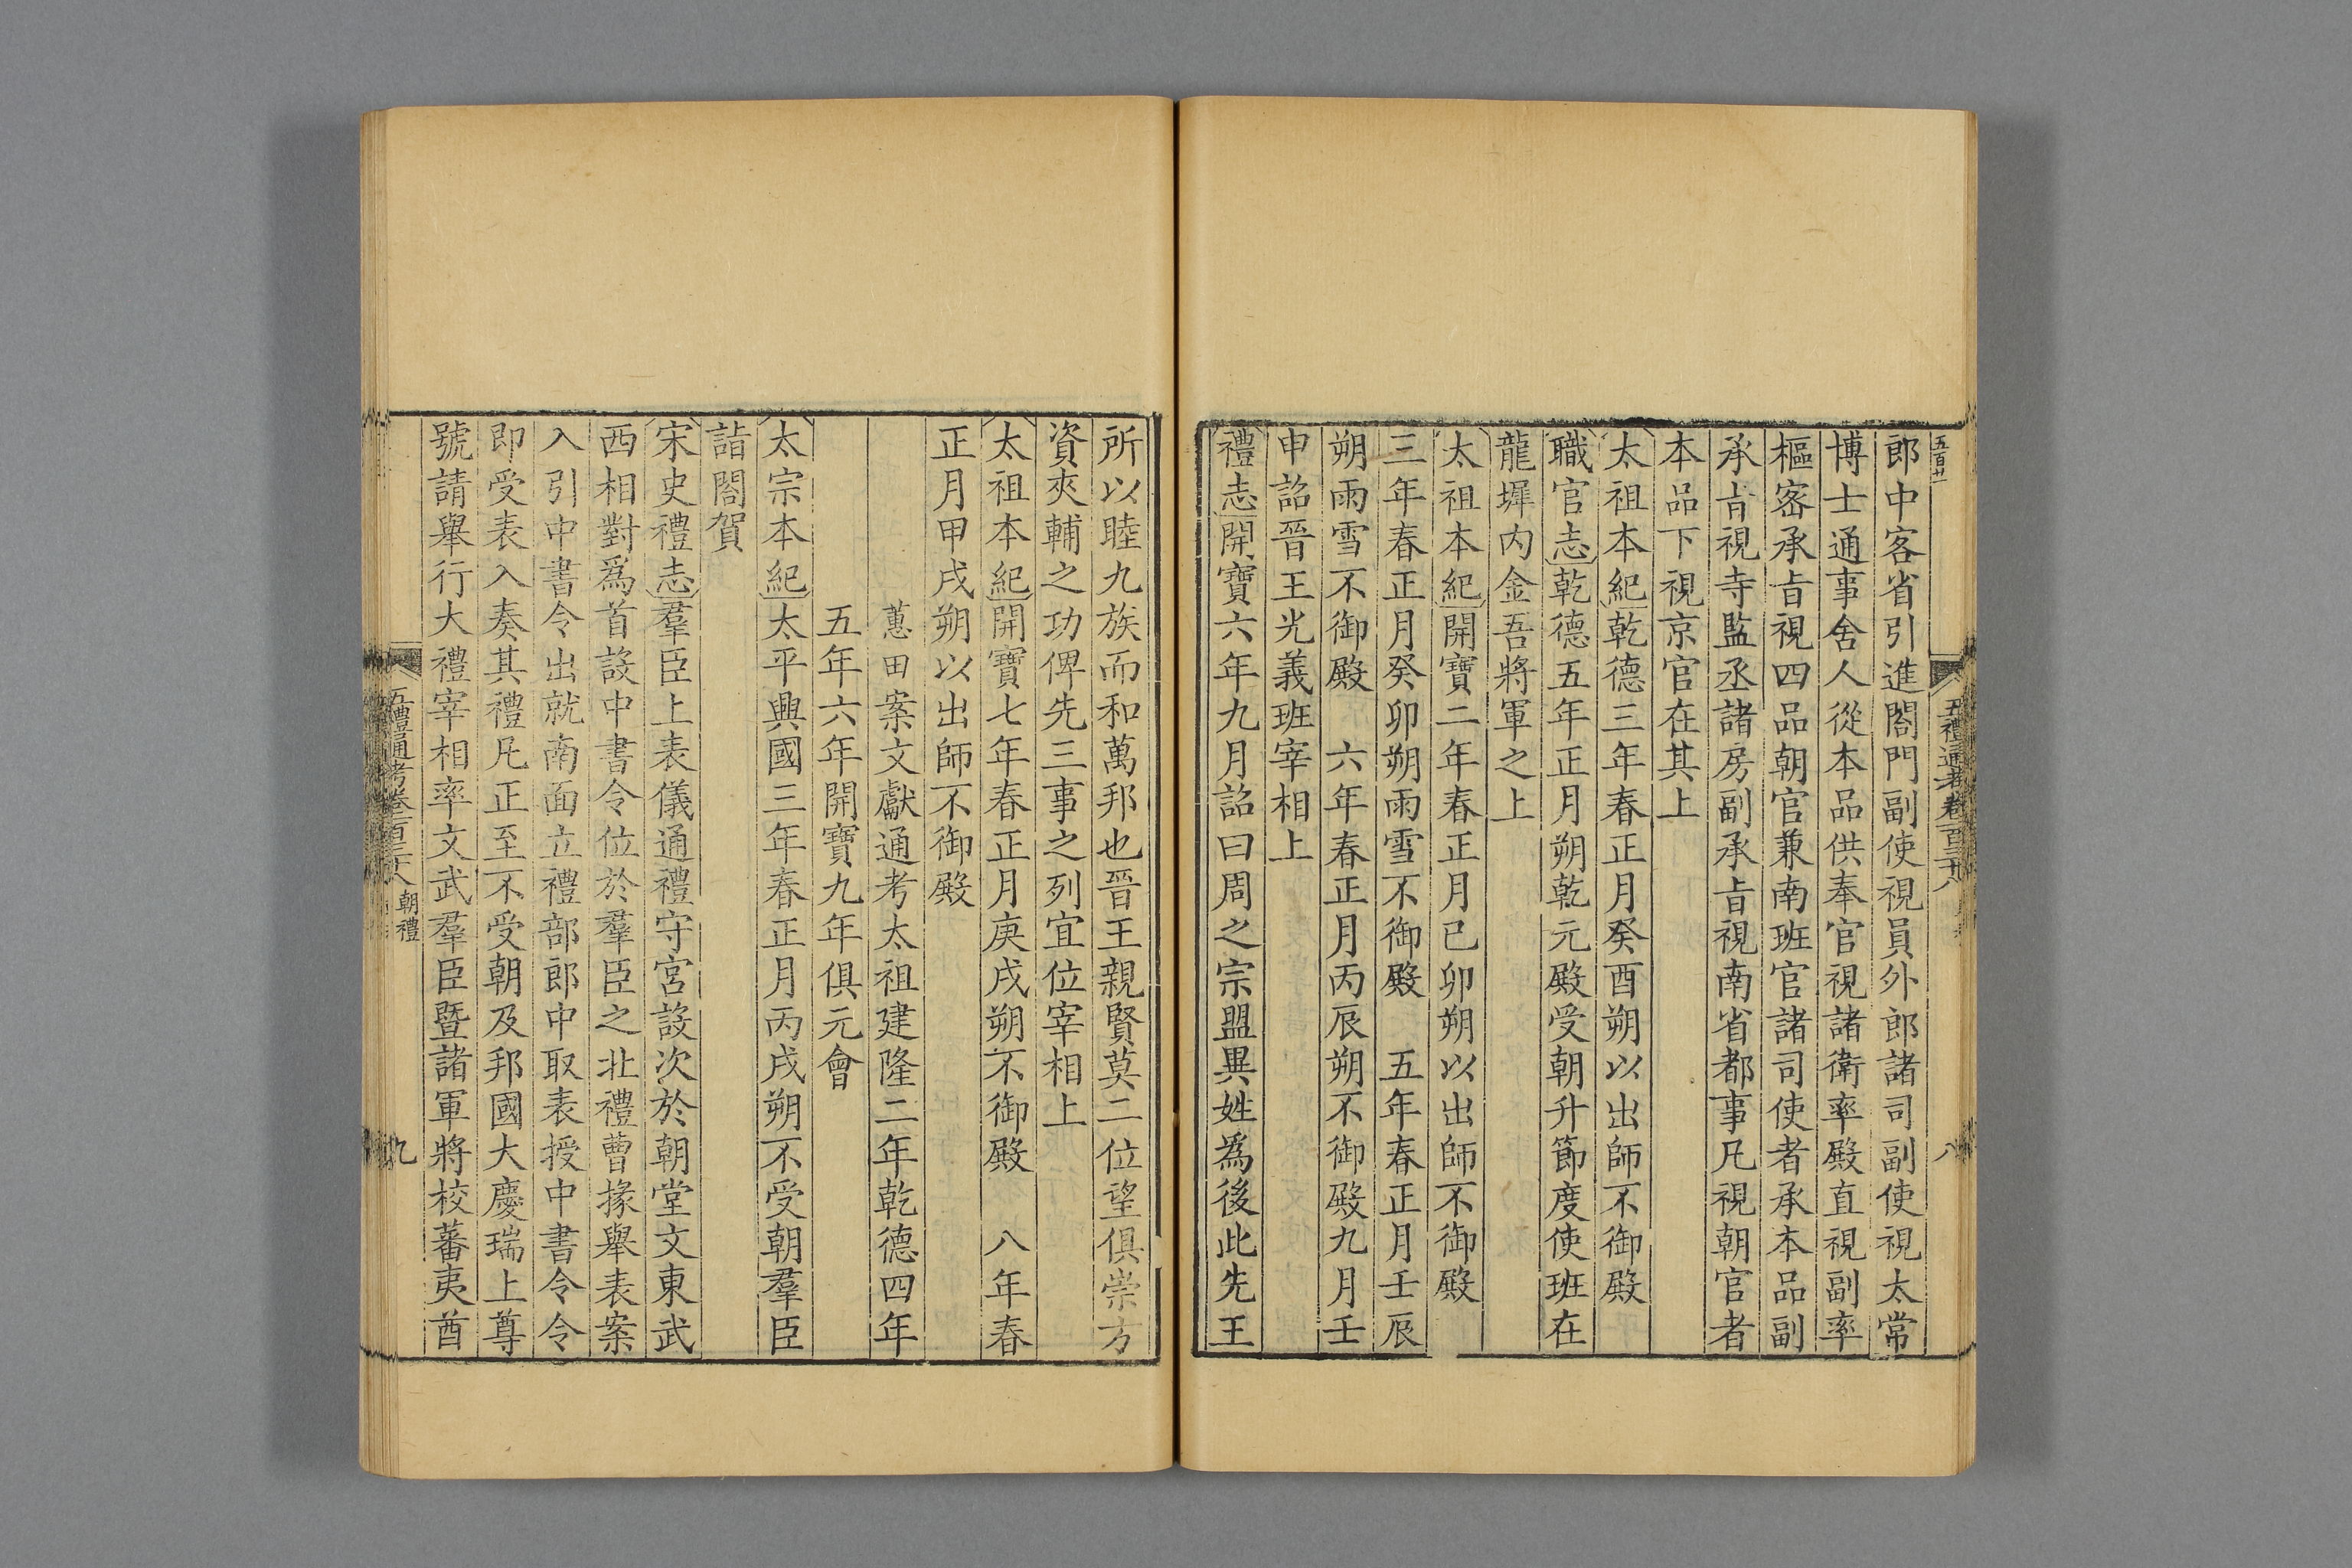 五百廿一
五禮通考卷一百三十八
八
郎中客省引進閤門副使視員外郎諸司副使視太常
博士通事舍人從本品供奉官視諸衛率殿直視副率
樞密承旨視四品朝官兼南班官諸司使者承本品副
承旨視寺監丞諸房副承旨視南省都事凡視朝官者
本品下視京官在其上
太祖本紀乾德三年春正月癸酉朔以出師不御殿
職官志乾德五年正月朔乾元殿受朝升節度使班在
龍墀内金吾將軍之上
太祖本紀開寶二年春正月己卯朔以出師不御殿
三年春正月癸卯朔雨雪不御殿 五年春正月壬辰
朔雨雪不御殿 六年春正月丙辰朔不御殿九月壬
申詔晉王光義班宰相上
禮志開寶六年九月詔曰周之宗盟異姓為後此先王
所以睦九族而和萬邦也晉王親賢莫二位望俱崇方
資夾輔之功俾先三事之列宜位宰相上
太祖本紀開寶七年春正月庚戌朔不御殿 八年春
正月甲戌朔以出師不御殿
蕙田案文獻通考太祖建隆二年乾德四年
五年六年開寶九年俱元會
太宗本紀太平興國三年春正月丙戌朔不受朝羣臣
詣閤賀
宋史禮志羣臣上表儀通禮守宮設次於朝堂文東武
西相對爲首設中書令位於羣臣之北禮曹掾舉表案
入引中書令出就南面立禮部郎中取表授中書令令
即受表入奏其禮凡正至不受朝及邦國大慶瑞上尊
號請舉行大禮宰相率文武羣臣暨諸軍將校蕃夷酋
五禮通考卷一百三十八 朝禮
九